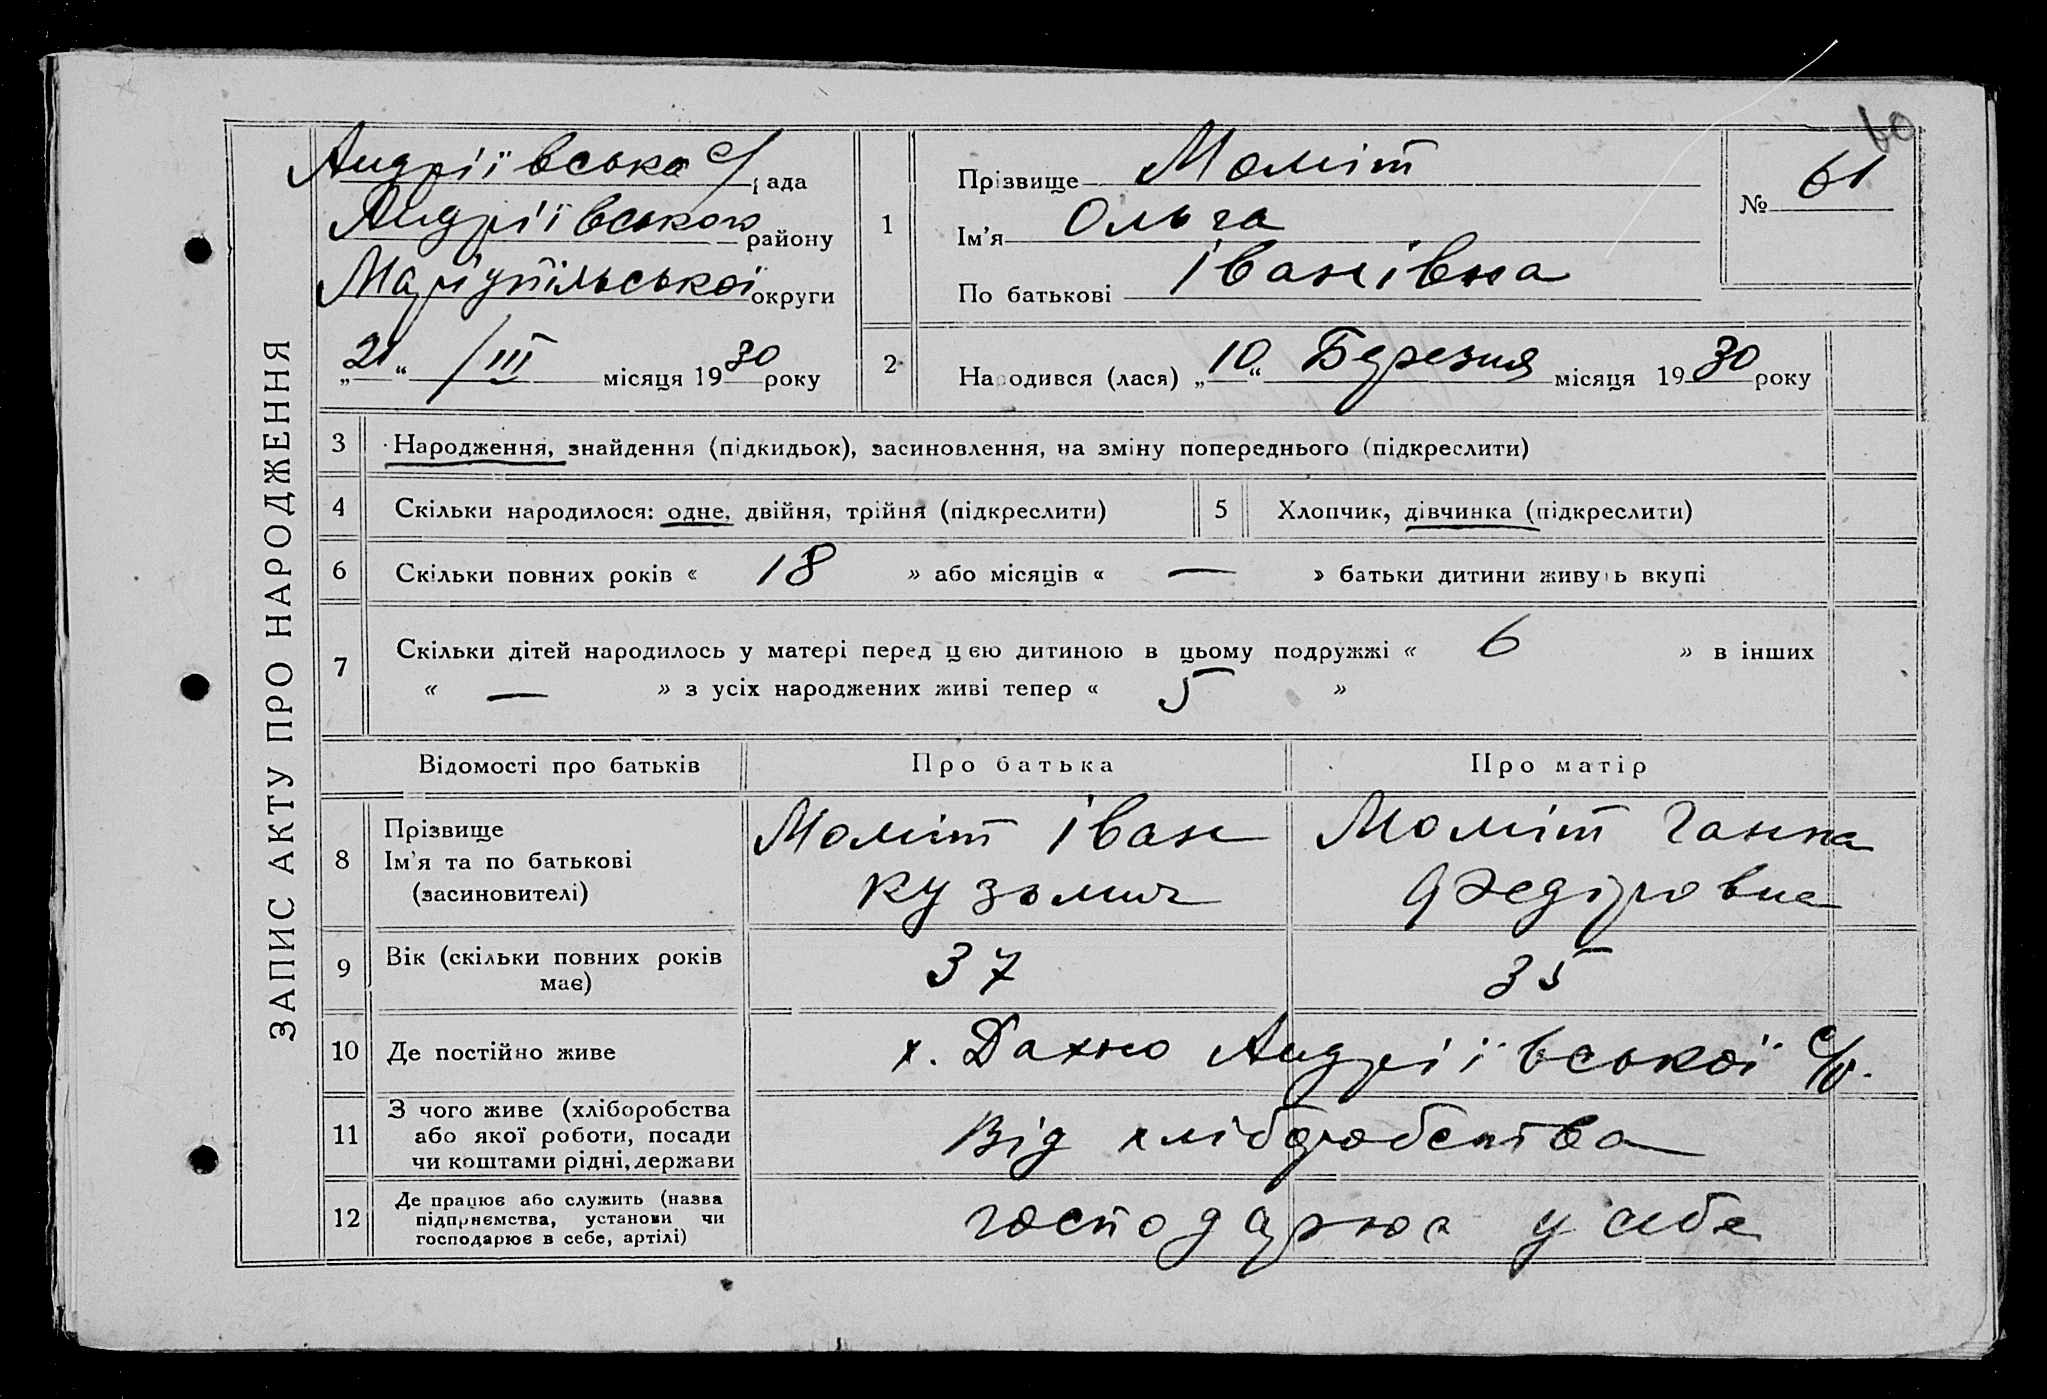 60
ЗАПИС АКТУ ПРО НАРОДЖЕННЯ
Андріівська с/рада
Андріївського району
Маріупільської округи
„21“ /III місяця 1930 року
1
Прізвище Моміт
Ім'я Ольга
По батькові Іванівна
№ 61
2
Народився (лася) „10“ Березня місяця 1930 року
3 Народження, знайдення (підкидьок), засиновлення, на зміну попереднього (підкреслити)
4 Скільки народилося: одне, двійня, трійня (підкреслити) 5 Хлопчик, дівчинка (підкреслити)
6 Скільки повних років « 18 » або місяців « — » батьки дитини живуть вкупі
7 Скільки дітей народилось у матері перед цією дитиною в цьому подружжі « 6 » в інших
« — » з усіх народжених живі тепер « 5 »
Відомості про батьків Про батька Про матір
8 Прізвище
Ім'я та по батькові
(засиновителі)
Моміт Іван
Кузьмич
Моміт Ганна
Федіровна
9 Вік (скільки повних років
має)
37 35
10 Де постійно живе х. Дахно Андріївської с/р.
11 З чого живе (хліборобства
або якої роботи, посади
чи коштами рідні, держави
Від хліборобства
12 Де працює або служить (назва
підприємства, установи чи
господарює в себе, артілі)
господарює у себе